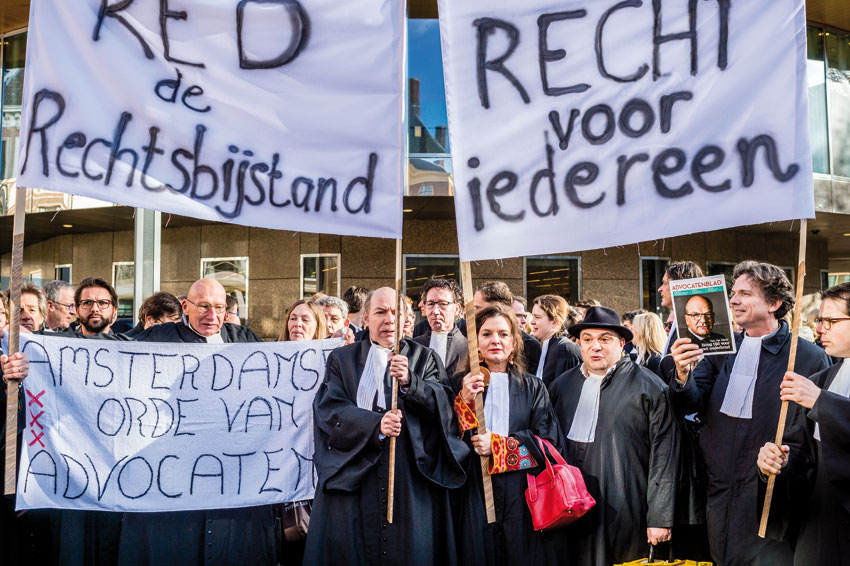 RED
de
Rechtsbijstand
RECHT
voor
iedereen
AMSTERDAMSE
ORDE VAN
XXX
ADVOCATEN
ADVOCATENBLAD